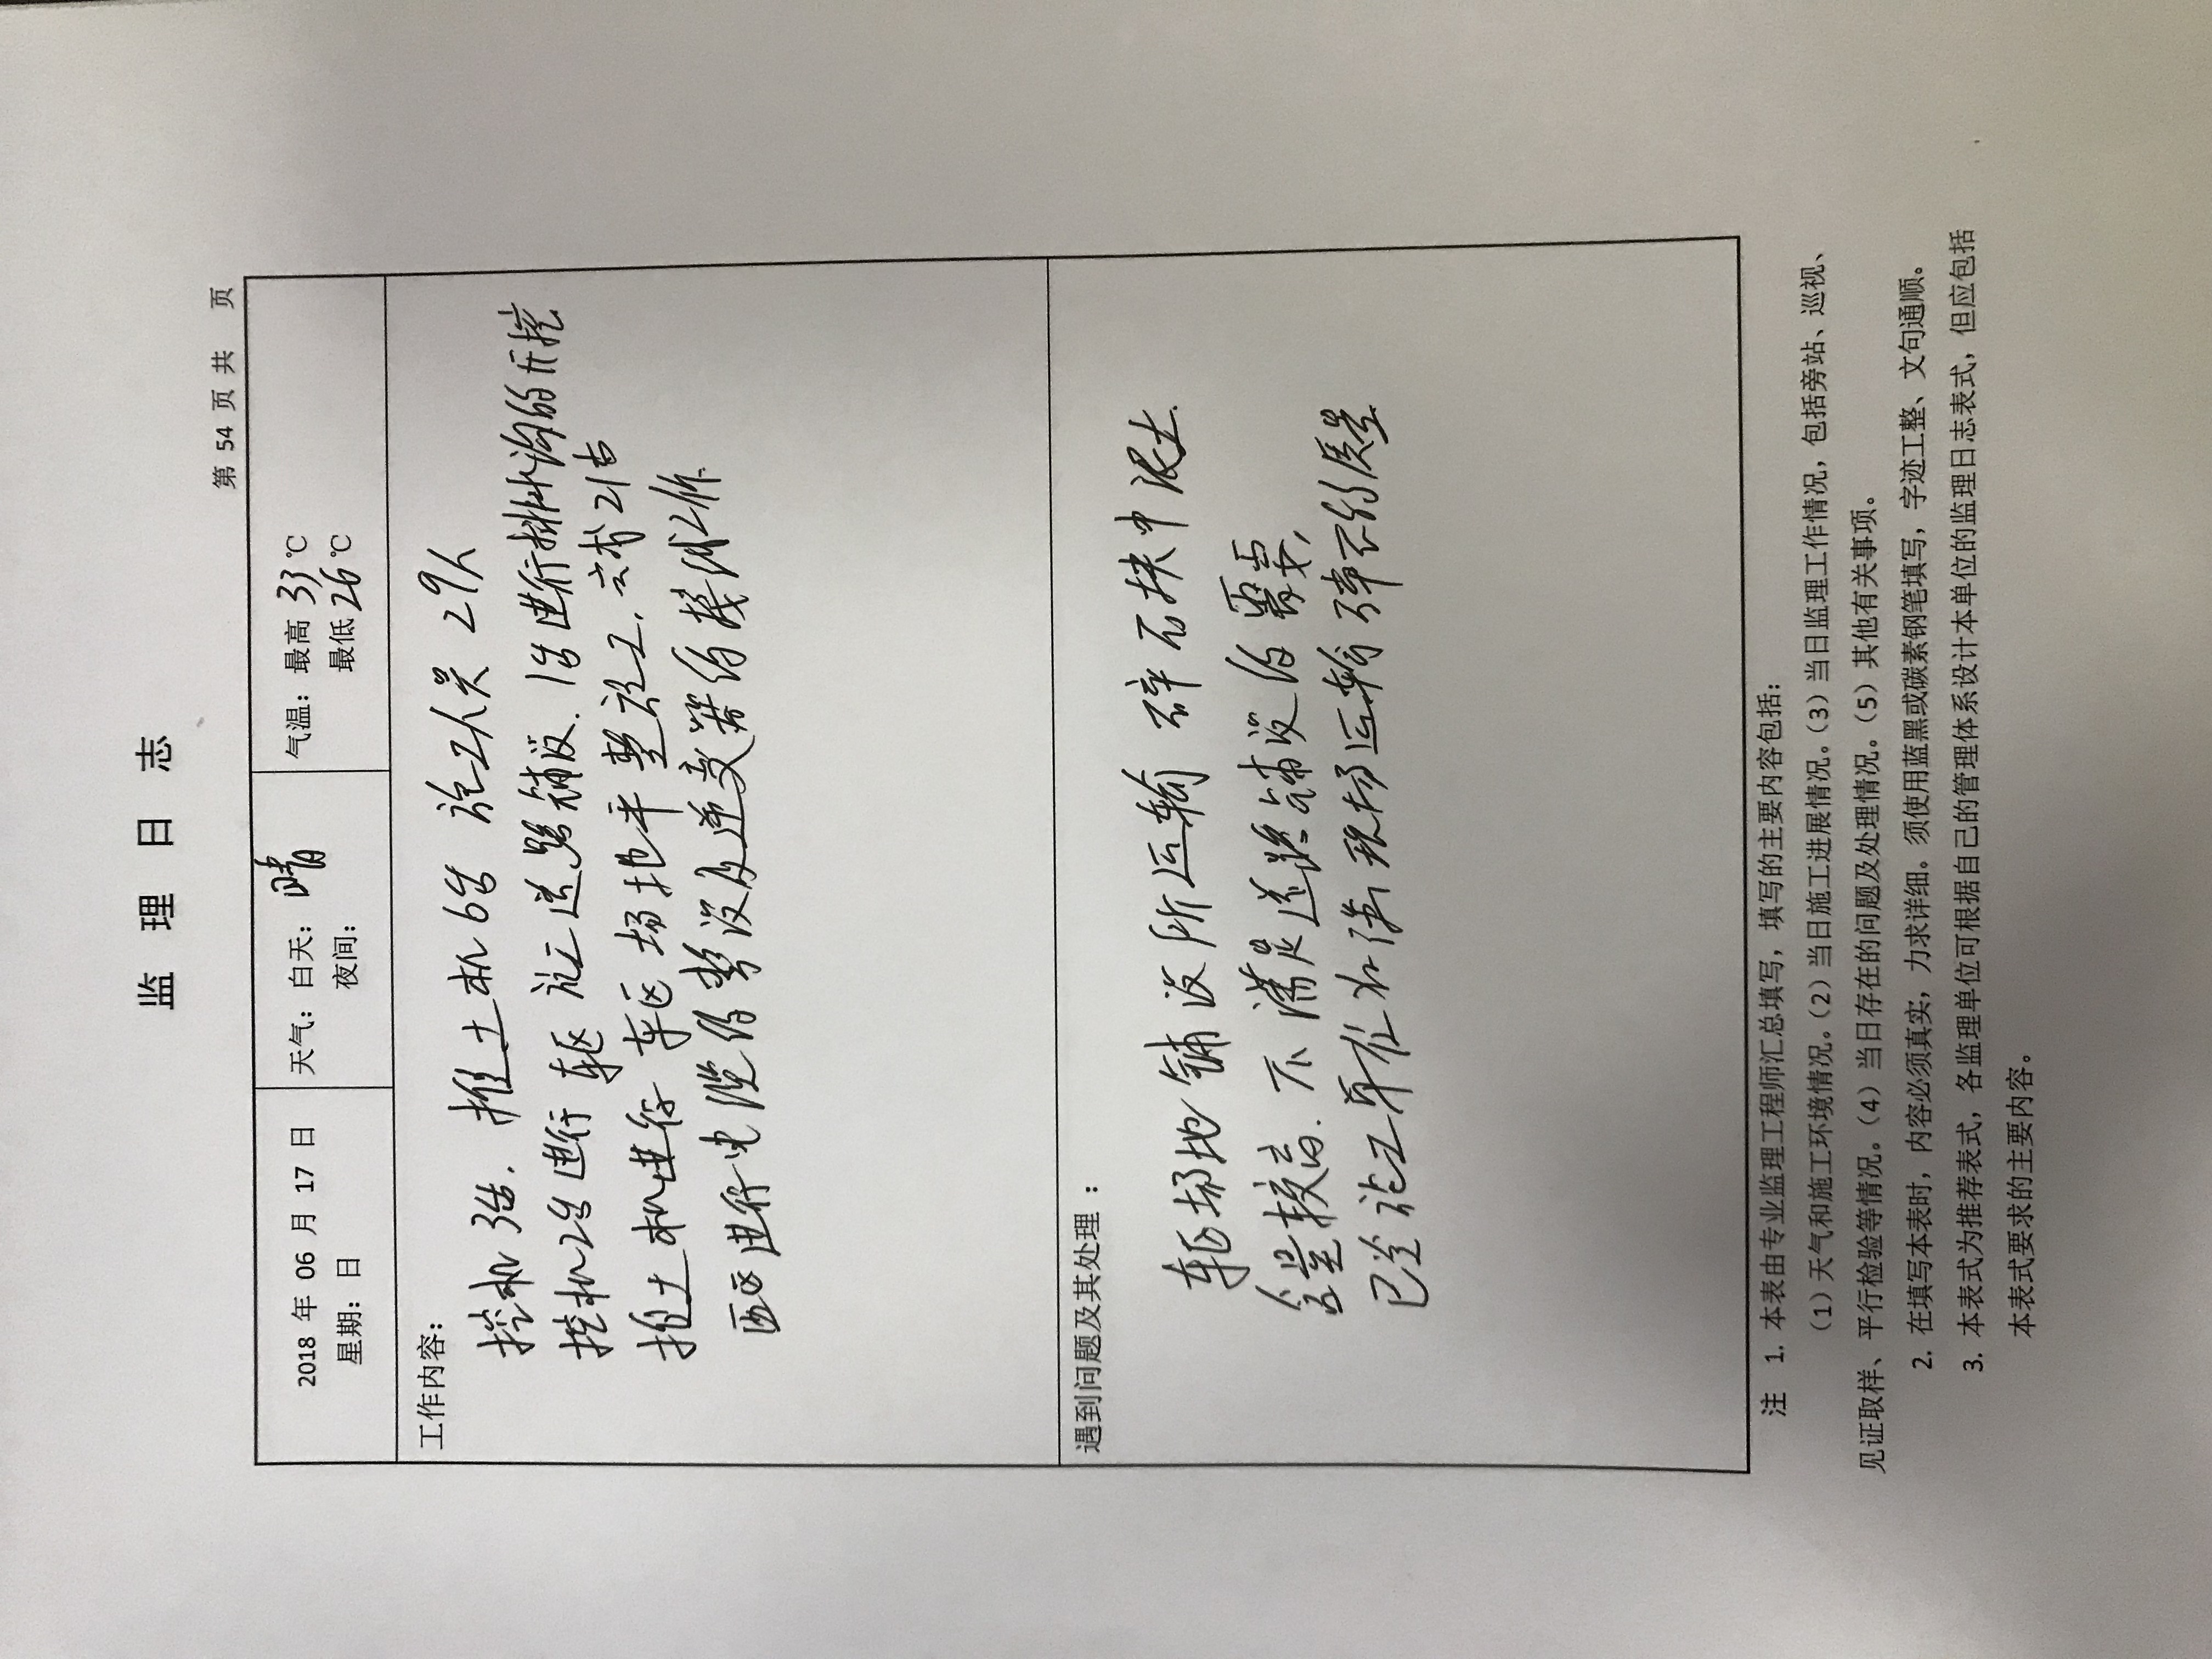 监 理 日 志
第 54 页 共 页
2018 年 06 月 17 日
星期：日
天气：白天：晴
夜间：
气温：最高 33 ℃
最低 26 ℃
工作内容：
挖机3台. 推土机6台 施工人员 29人
挖机2台进行 车区 施工道路铺设. 1台进行排水沟的开挖
推土机进行 车区 场地平整施工.
西区进行电缆的敷设及逆变器的接线工作.
遇到问题及其处理 ：
车区场地铺设所运输 碎石扶中泥土.
含量较高. 不满足道路铺设的需要,
已要施工单位 现场运输碎石的质量
注 1. 本表由专业监理工程师汇总填写，填写的主要内容包括：
（1）天气和施工环境情况。（2）当日施工进展情况。（3）当日监理工作情况，包括旁站、巡视、
见证取样、平行检验等情况。（4）当日存在的问题及处理情况。（5）其他有关事项。
2. 在填写本表时，内容必须真实，力求详细。须使用蓝黑或碳素钢笔填写，字迹工整、文句通顺。
3. 本表式为推荐表式，各监理单位可根据自己的管理体系设计本单位的监理日志表式，但应包括
本表式要求的主要内容。